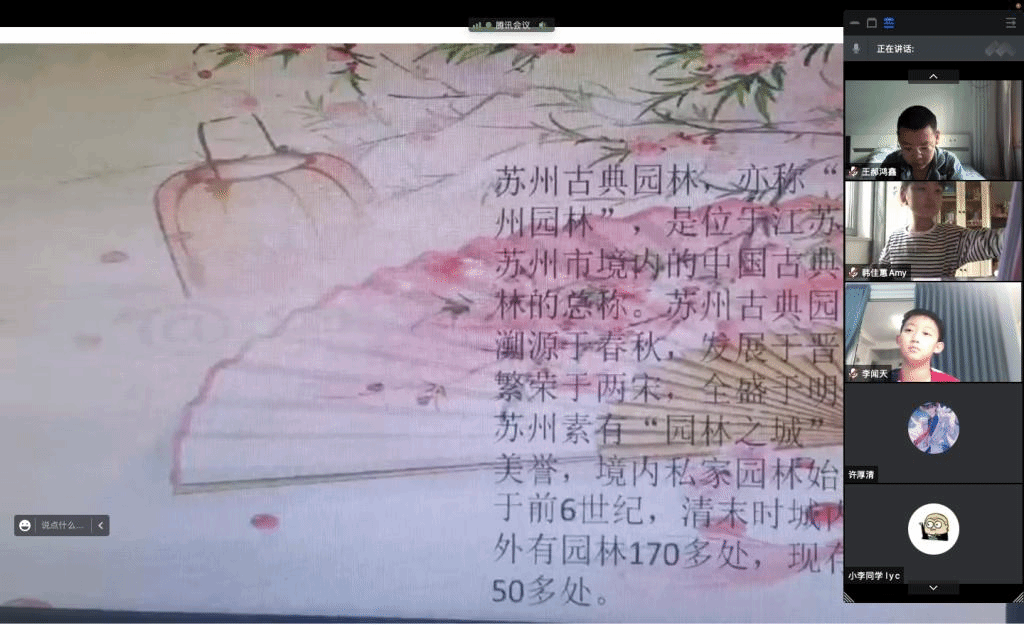 腾讯会议
正在讲话:
苏州古典园林，亦称“
州园林”，是位于江苏
苏州市境内的中国古典
林的总称。苏州古典园
溯源于春秋，发展于晋
繁荣于两宋，全盛于明
苏州素有“园林之城”
美誉，境内私家园林始
于前6世纪，清末时城内
外有园林170多处，现存
50多处。
王郝鸿鑫
韩佳蕙Amy
李闻天
许厚清
小李同学lyc
说点什么...